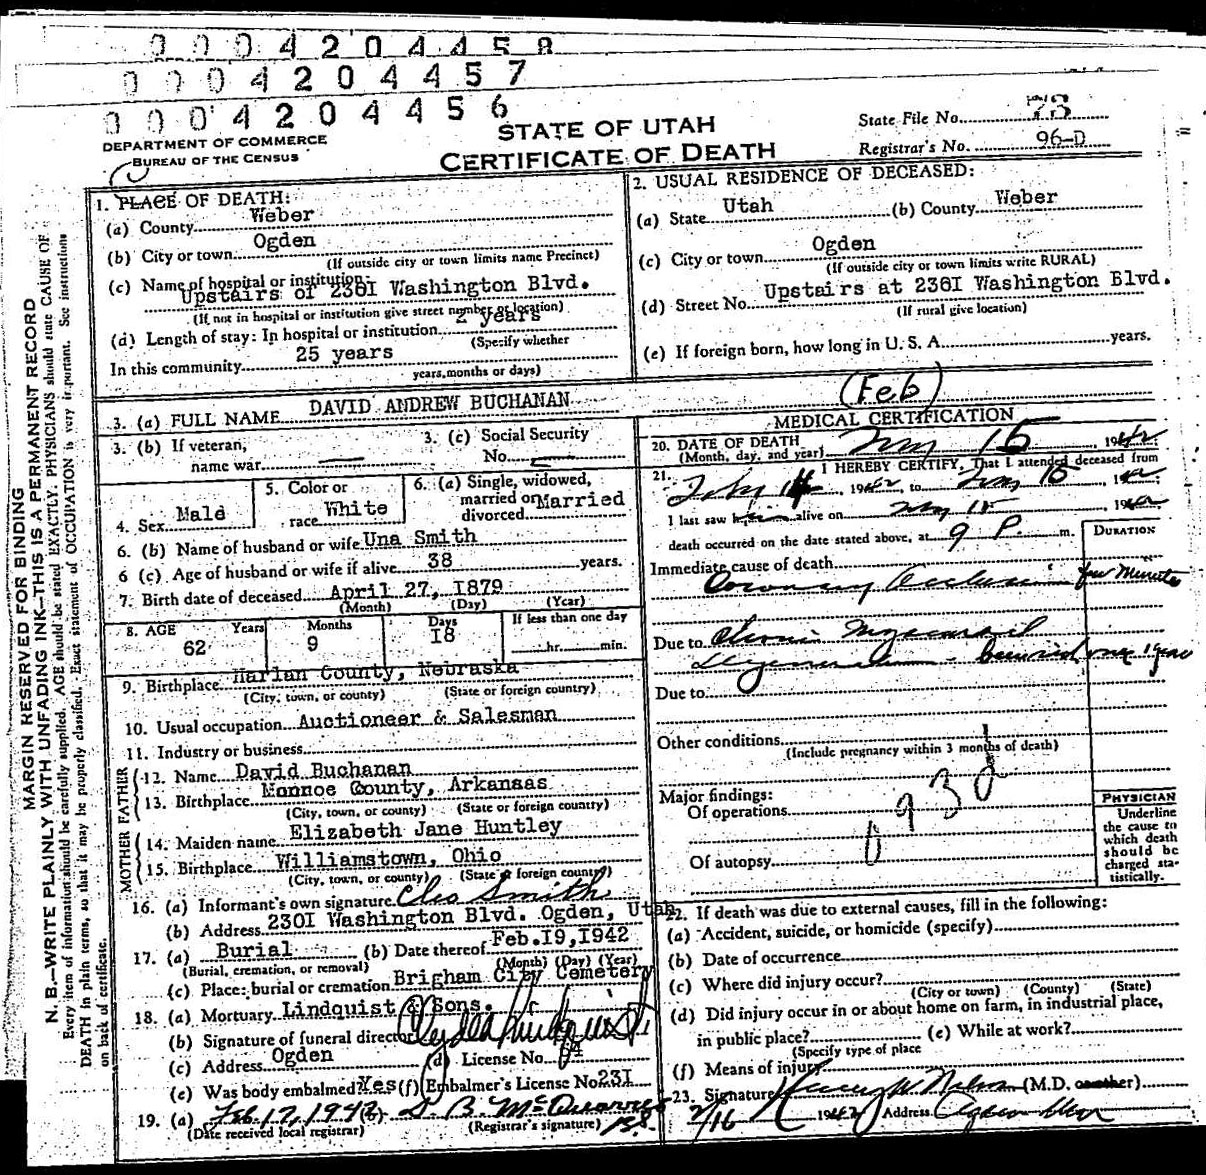 0 0 0 4 2 0 4 4 5 8
0 0 0 4 2 0 4 4 5 7
0 0 0 4 2 0 4 4 5 6
DEPARTMENT OF COMMERCE
BUREAU OF THE CENSUS
STATE OF UTAH
CERTIFICATE OF DEATH
State File No. 73
Registrar's No. 96-D
MARGIN RESERVED FOR BINDING
N. B.—WRITE PLAINLY WITH UNFADING INK—THIS IS A PERMANENT RECORD
Every item of information should be carefully supplied. AGE should be stated EXACTLY. PHYSICIANS should state CAUSE OF
DEATH in plain terms, so that it may be properly classified. Exact statement of OCCUPATION is very important. See instructions
on back of certificate.
1. PLACE OF DEATH:
(a) County Weber
(b) City or town Ogden
(If outside city or town limits name Precinct)
(c) Name of hospital or institution:
Upstairs of 2301 Washington Blvd.
(If not in hospital or institution give street number or location)
(d) Length of stay: In hospital or institution 2 years
(Specify whether
In this community 25 years
years, months or days)
2. USUAL RESIDENCE OF DECEASED:
(a) State Utah (b) County Weber
(c) City or town Ogden
(If outside city or town limits write RURAL)
(d) Street No. Upstairs at 2301 Washington Blvd.
(If rural give location)
(e) If foreign born, how long in U. S. A. years.
3. (a) FULL NAME DAVID ANDREW BUCHANAN
3. (b) If veteran,
name war
3. (c) Social Security
No.
4. Sex Male
5. Color or
race White
6. (a) Single, widowed,
married or
divorced Married
6. (b) Name of husband or wife Una Smith
6 (c) Age of husband or wife if alive 38 years.
7. Birth date of deceased April 27, 1879
(Month) (Day) (Year)
8. AGE Years Months Days If less than one day
62 9 18 hr. min.
9. Birthplace Harlan County, Nebraska
(City, town, or county) (State or foreign country)
10. Usual occupation Auctioneer & Salesman
11. Industry or business
FATHER
12. Name David Buchanan
13. Birthplace Monroe County, Arkansas
(City, town, or county) (State or foreign country)
MOTHER
14. Maiden name Elizabeth Jane Huntley
15. Birthplace Williamstown, Ohio
(City, town, or county) (State or foreign country)
16. (a) Informant's own signature Cleo Smith
(b) Address 2301 Washington Blvd. Ogden, Utah
17. (a) Burial (b) Date thereof Feb. 19, 1942
(Burial, cremation, or removal) (Month) (Day) (Year)
(c) Place: burial or cremation Brigham City Cemetery
18. (a) Mortuary Lindquist & Sons.
(b) Signature of funeral director
(c) Address Ogden (d) License No. 64
(e) Was body embalmed? Yes (f) Embalmer's License No. 231
19. (a) Feb. 17, 1942 (b)
(Date received local registrar) (Registrar's signature)
(Feb)
MEDICAL CERTIFICATION
20. DATE OF DEATH 15 1942
(Month, day, and year)
21. I HEREBY CERTIFY, That I attended deceased from
14 1942, to 15
I last saw him alive on 15 1942
death occurred on the date stated above, at 9 P. m.
DURATION
Immediate cause of death
Coronary Occlusion few minutes
Due to Chronic Myocardial
Degeneration 1 year
Due to
Other conditions
(Include pregnancy within 3 months of death)
Major findings:
Of operations
Of autopsy
PHYSICIAN
Underline
the cause to
which death
should be
charged sta-
tistically.
22. If death was due to external causes, fill in the following:
(a) Accident, suicide, or homicide (specify)
(b) Date of occurrence
(c) Where did injury occur?
(City or town) (County) (State)
(d) Did injury occur in or about home on farm, in industrial place,
in public place? (e) While at work?
(Specify type of place
(f) Means of injury
23. Signature (M.D. or other)
2/16 1942 Address Ogden Utah